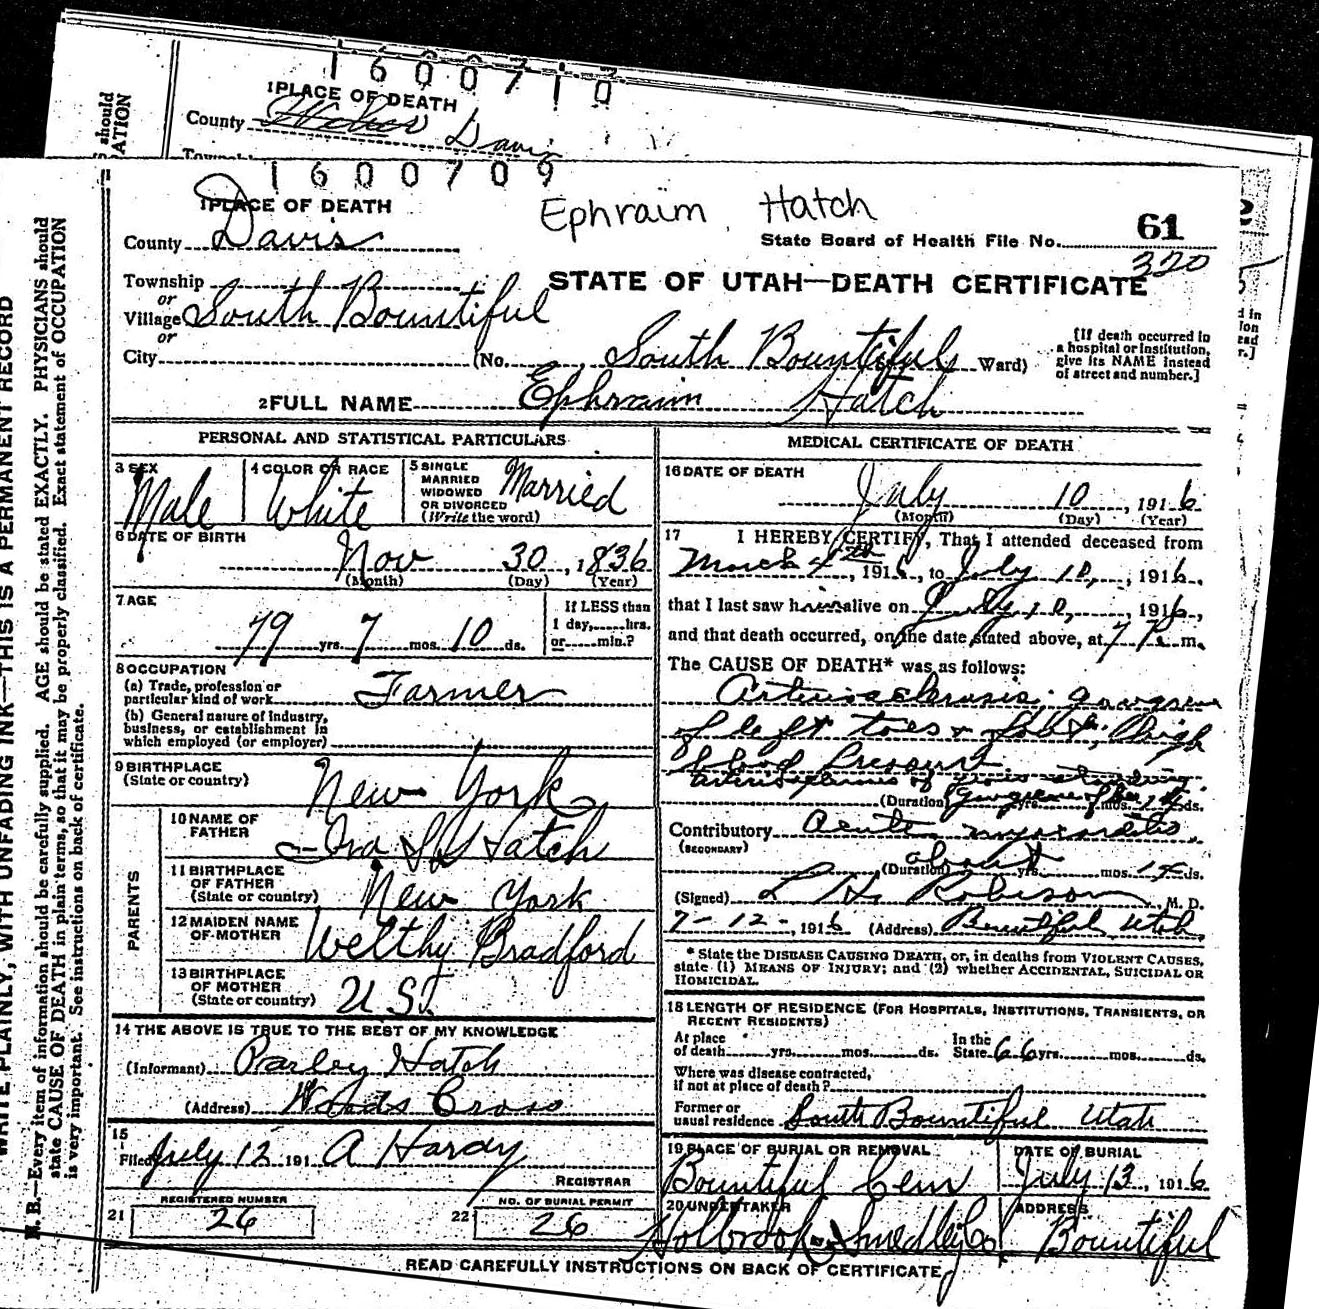 1600710
1 PLACE OF DEATH
County Davis
1600709
1 PLACE OF DEATH
Ephraim Hatch
61
County Davis
State Board of Health File No. 320
Township
or
Village South Bountiful
or
City
STATE OF UTAH—DEATH CERTIFICATE
(No. South Bountiful Ward)
[If death occurred in a hospital or institution, give its NAME instead of street and number.]
2 FULL NAME Ephraim Hatch
PERSONAL AND STATISTICAL PARTICULARS
3 SEX Male
4 COLOR OR RACE White
5 SINGLE MARRIED WIDOWED OR DIVORCED (Write the word) Married
6 DATE OF BIRTH
Nov 30, 1836
(Month) (Day) (Year)
7 AGE
79 yrs. 7 mos. 10 ds.
If LESS than 1 day, hrs. or min.?
8 OCCUPATION
(a) Trade, profession or particular kind of work Farmer
(b) General nature of industry, business, or establishment in which employed (or employer)
9 BIRTHPLACE
(State or country) New York
PARENTS
10 NAME OF FATHER Ira S Hatch
11 BIRTHPLACE OF FATHER (State or country) New York
12 MAIDEN NAME OF MOTHER Welthy Bradford
13 BIRTHPLACE OF MOTHER (State or country) U.S.
14 THE ABOVE IS TRUE TO THE BEST OF MY KNOWLEDGE
(Informant) Parley Hatch
(Address) Woods Cross
15
Filed July 12 191 A Hardy
REGISTRAR
REGISTERED NUMBER
21 26
NO. OF BURIAL PERMIT
22 26
MEDICAL CERTIFICATE OF DEATH
16 DATE OF DEATH
July 10, 1916
(Month) (Day) (Year)
17 I HEREBY CERTIFY, That I attended deceased from
March 4th, 1916, to July 10, 1916,
that I last saw him alive on July 10, 1916,
and that death occurred, on the date stated above, at 7 m.
The CAUSE OF DEATH* was as follows:
Arteriosclerosis; gangrene
of left toes + foot; high
blood pressure
(Duration) yrs. mos. ds.
Contributory Acute myocarditis
(SECONDARY)
(Duration) about yrs. mos. ds.
(Signed) L H. Robison, M. D.
7-12-, 1916 (Address) Bountiful Utah
* State the DISEASE CAUSING DEATH, or, in deaths from VIOLENT CAUSES, state (1) MEANS OF INJURY; and (2) whether ACCIDENTAL, SUICIDAL OR HOMICIDAL.
18 LENGTH OF RESIDENCE (FOR HOSPITALS, INSTITUTIONS, TRANSIENTS, OR RECENT RESIDENTS)
At place of death yrs. mos. ds. In the State 66 yrs. mos. ds.
Where was disease contracted, if not at place of death?
Former or usual residence South Bountiful Utah
19 PLACE OF BURIAL OR REMOVAL
Bountiful Cem
DATE OF BURIAL
July 13, 1916
20 UNDERTAKER
Holbrook & Smedley Co
ADDRESS
Bountiful
READ CAREFULLY INSTRUCTIONS ON BACK OF CERTIFICATE
WRITE PLAINLY, WITH UNFADING INK—THIS IS A PERMANENT RECORD
N. B.—Every item of information should be carefully supplied. AGE should be stated EXACTLY. PHYSICIANS should
state CAUSE OF DEATH in plain terms, so that it may be properly classified. Exact statement of OCCUPATION
is very important. See instructions on back of certificate.